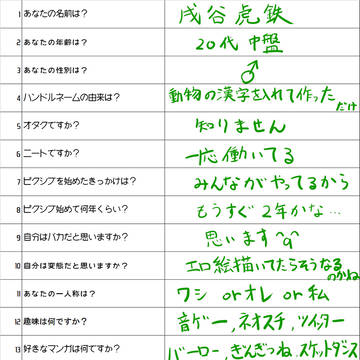 1 あなたの名前は? 戌谷虎鉄
2 あなたの年齢は? 20代中盤
3 あなたの性別は? ♂
4 ハンドルネームの由来は? 動物の漢字を入れて作っただけ
5 オタクですか? 知りません
6 ニートですか? 一応働いてる
7 ピクシブを始めたきっかけは? みんながやってるから
8 ピクシブ始めて何年くらい? もうすぐ2年かな…
9 自分はバカだと思いますか? 思います^q^
10 自分は変態だと思いますか? エロ絵描いてたらそうなるのかね
11 あなたの一人称は? ワシ or オレ or 私
12 趣味は何ですか? 音ゲー,ネオスチ,ツイッター
13 好きなマンガは何ですか? バーロー,ぎんぎつね,スケットダンス